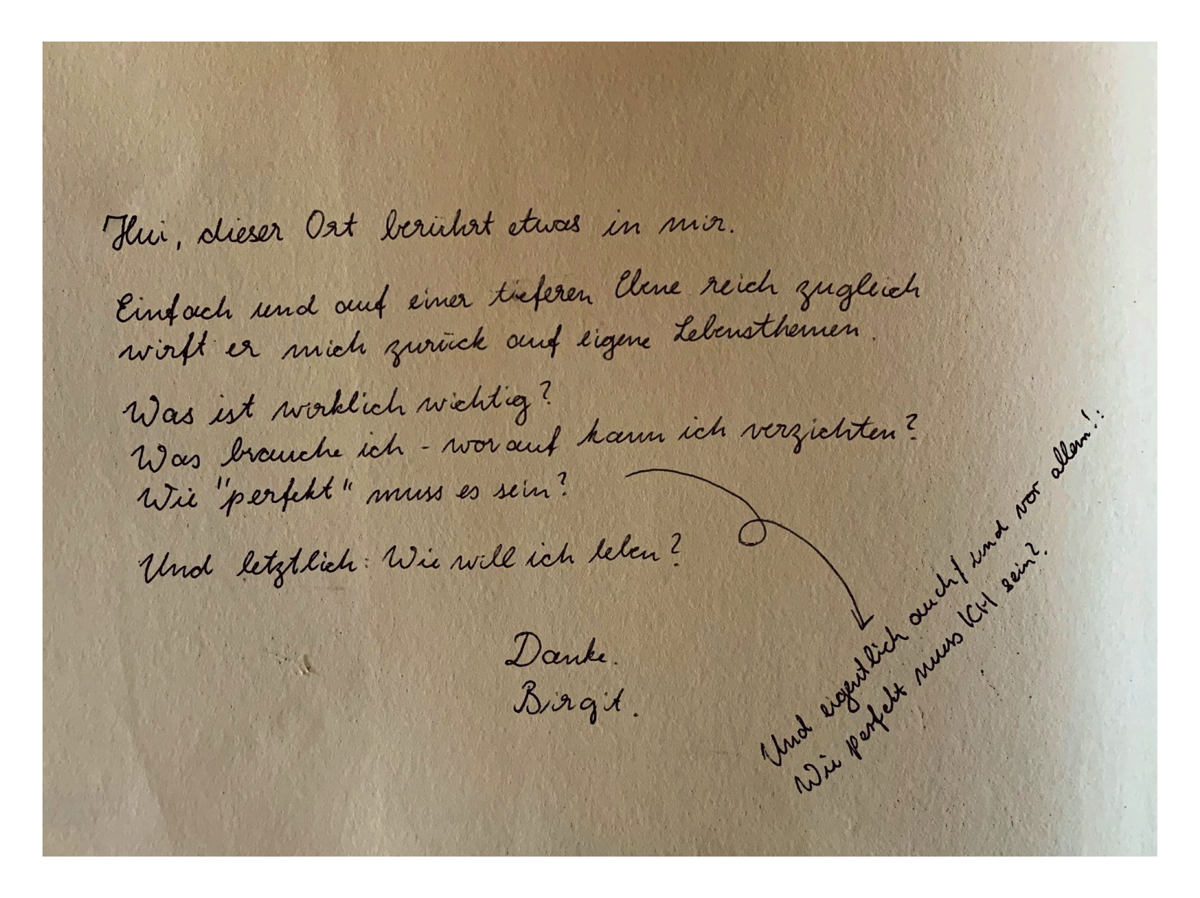 Hui, dieser Ort berührt etwas in mir.
Einfach und auf einer tieferen Ebene reich zugleich
wirft er mich zurück auf eigene Lebensthemen.
Was ist wirklich wichtig?
Was brauche ich - worauf kann ich verzichten?
Wie "perfekt" muss es sein?
Und letztlich: Wie will ich leben?
Danke.
Birgit.
Und eigentlich auch/und vor allem!:
Wie perfekt muss ICH sein?